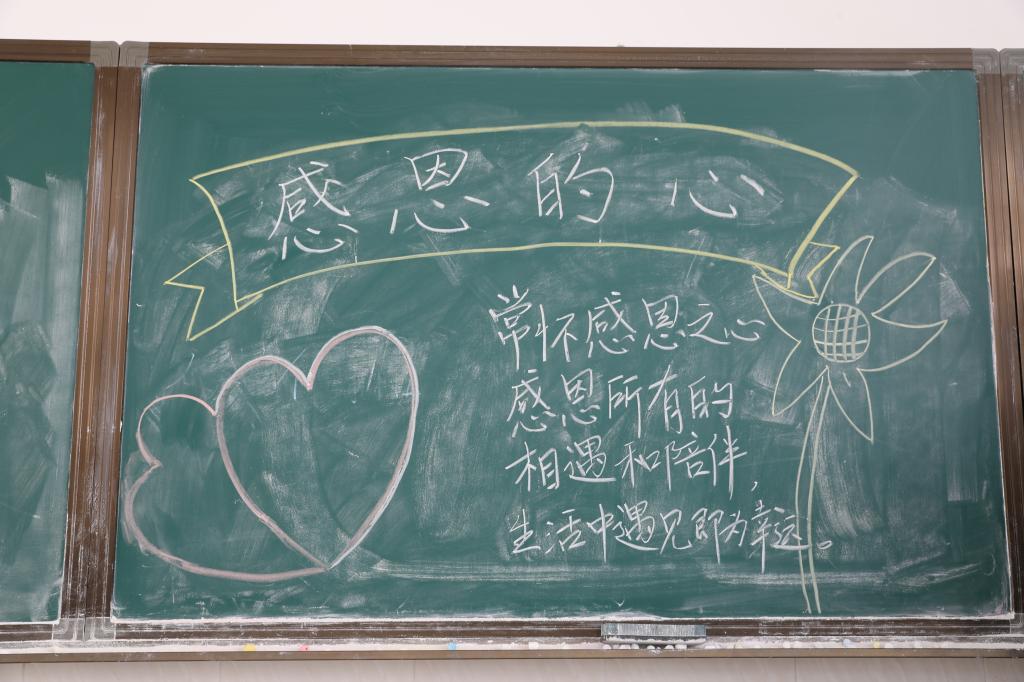 感恩的心
常怀感恩之心
感恩所有的
相遇和陪伴,
生活中遇见即为幸运。